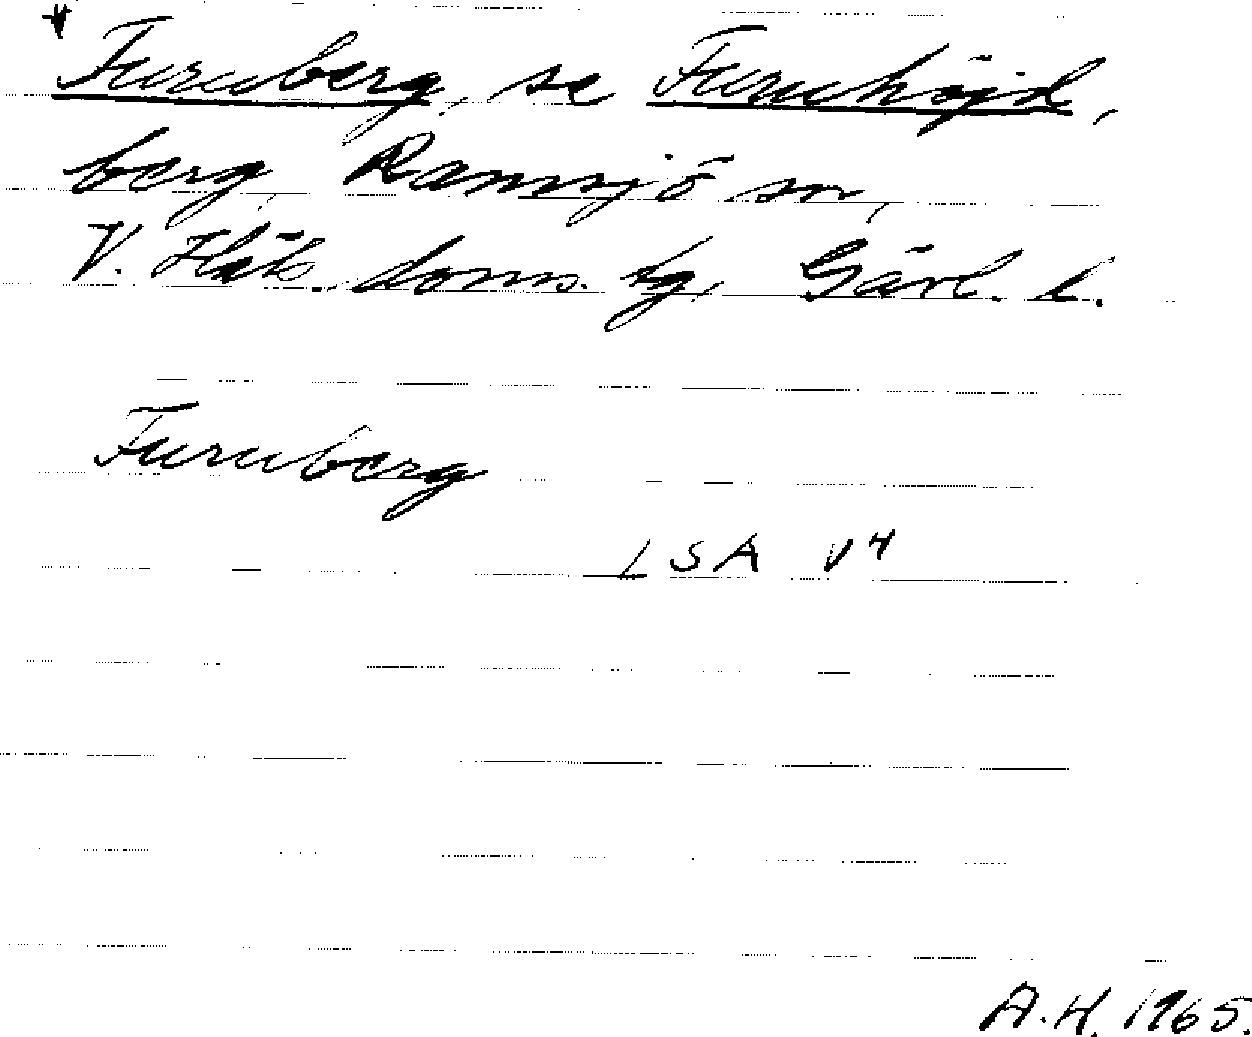 Furuberg, se Furuhöjd,
berg, Ramsjö sn,
V. Häls. doms. tg, Gävl. l.
Furuberg
LSA V4
A.H. 1965.